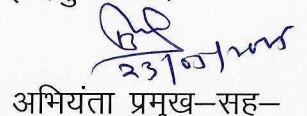 23/05/2025
अभियंता प्रमुख–सह–